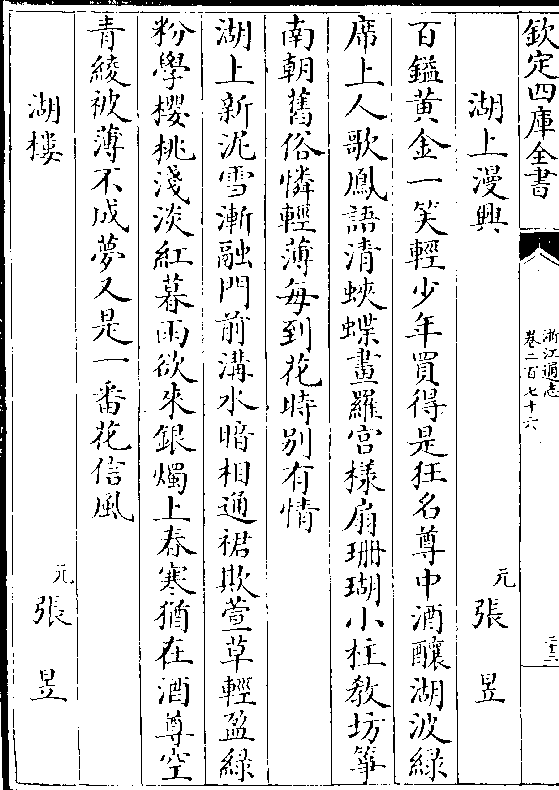 欽定四庫全書
浙江通志
卷二百七十六
二十二
湖上漫興
元張昱
百鎰黃金一笑輕少年買得是狂名尊中酒釀湖波綠
席上人歌鳳語清蛺蝶畫羅宫樣扇珊瑚小柱教坊箏
南朝舊俗憐輕薄每到花時别有情
湖上新泥雪漸融門前溝水暗相通裙欺萱草輕盈緑
粉學櫻桃淺淡紅暮雨欲來銀燭上春寒猶在酒尊空
青綾被薄不成夢又是一番花信風
湖樓
元張昱